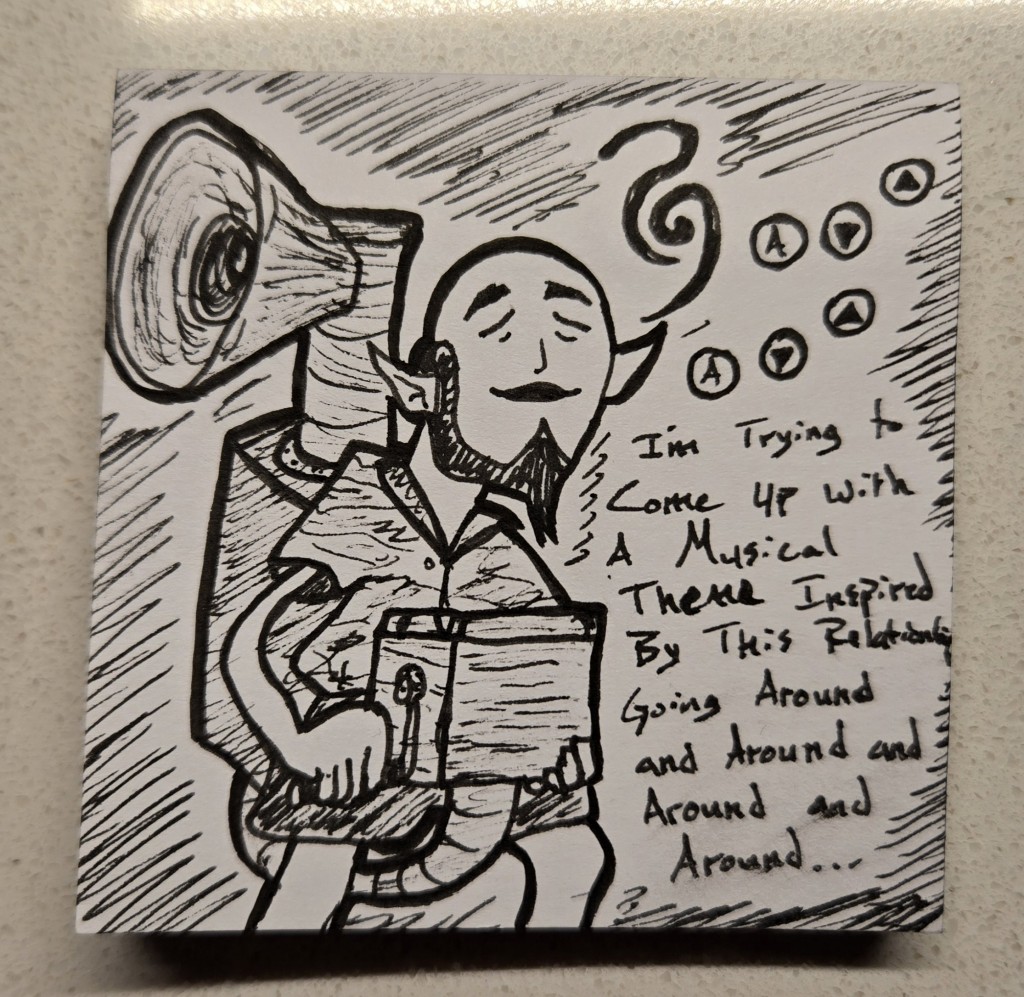 A
A
I'm Trying to
Come up with
A Musical
Theme Inspired
By This Relationship
Going Around
and Around and
Around and
Around...